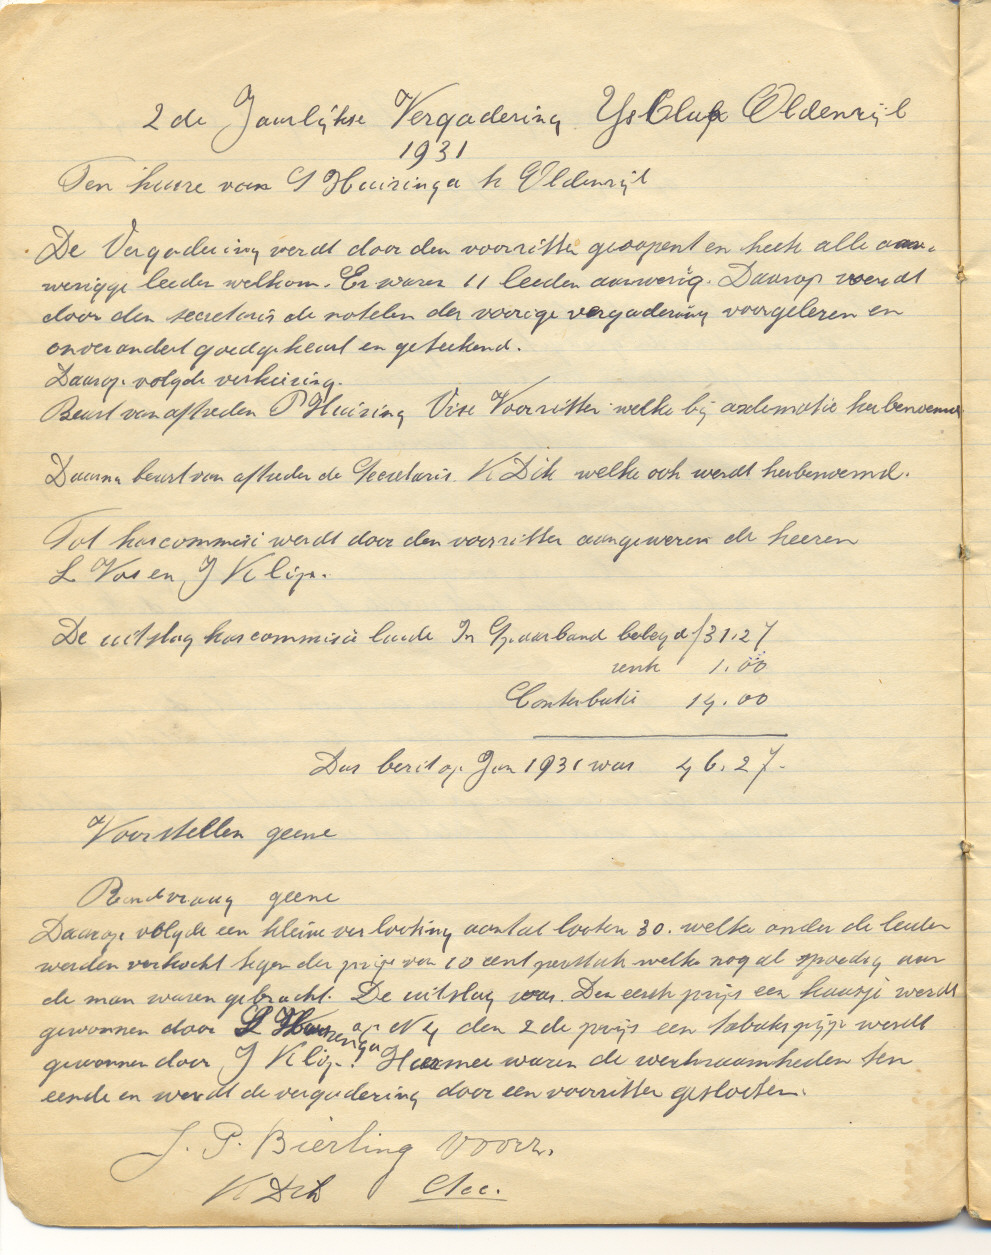 2de Jaarlijkse Vergadering YsClup Oldenzijl
1931
Ten huize van S Huizinga te Oldenzijl
De Vergadering werdt door den voorzitter geoopent en heete alle aan-
wezigge leeden welkom. Er waren 11 leeden aanwezig. Daarop werdt
door den secretaris de notelen der voorige vergadering voorgelezen en
onverandert goedgekeurt en geteekend.
Daarop volgde verkiezing.
Beurt van aftreden P Huizing Vise Voorzitter welke bij aclematie herbenoemd.
Daarna beurt van aftreden de Secretaris K Dik welke ook werdt herbenoemd.
Tot kascommisi werdt door den voorzitter aangewezen de heeren
L Vos en J Klip.
De uitslag kascommisie luide In Spaarbank belegd f 31.27
rente 1.00
Conterbutie 14.00
Dus bezit op Jan 1931 was 46.27.
Voorstellen geene
Rondvraag geene
Daarop volgde een kleine verlooting aantal looten 30. welke onder de leeden
werden verkocht tegen der prijs van 10 cent perstuk welke nog al spoedig aan
de man waren gebracht. De uitslag was. Den eerste prijs een kaasje werdt
gewonnen door S Huizinga op N 4 den 2de prijs een tabakspijp werdt
gewonnen door J Klip. Hiermee waren de werkzaamheden ten
eende en werdt de vergadering door een voorzitter geslooten.
J. P. Bierling Voorz.
K Dik Sec.